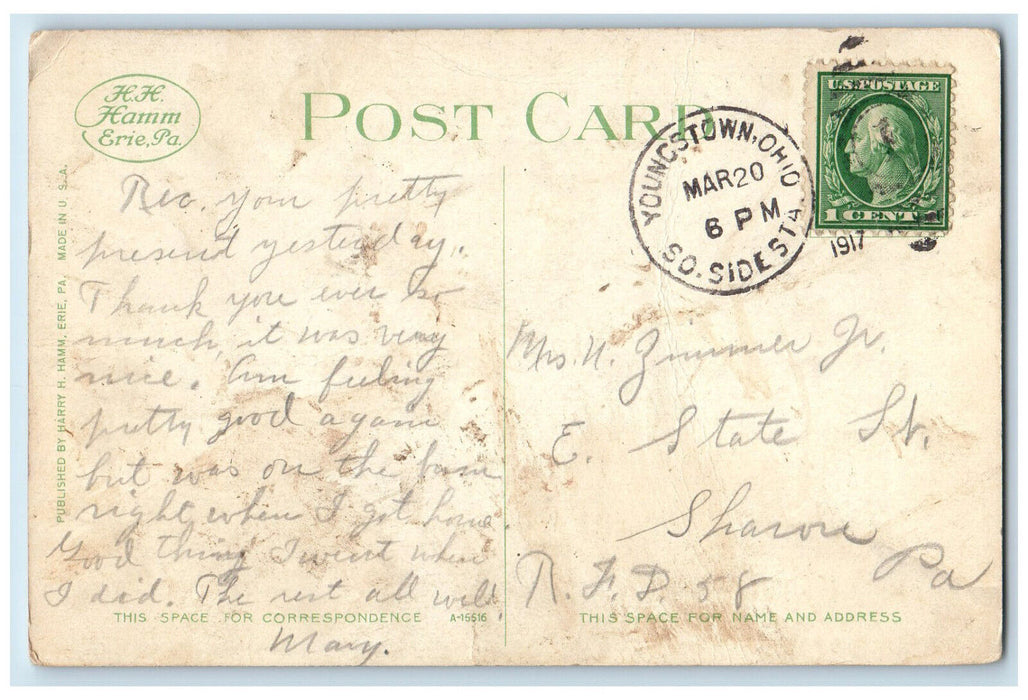 H.H.
Hamm
Erie, Pa.
POST CARD
YOUNGSTOWN, OHIO
MAR 20
6 PM
1917
SO. SIDE STA.
U.S. POSTAGE
1 CENT
PUBLISHED BY HARRY H. HAMM, ERIE, PA. MADE IN U. S. A.
Rec. your pretty
present yesterday.
Thank you ever so
much, it was very
nice. Am feeling
pretty good again
but was on the bum
right when I got home.
Good thing I went when
I did. The rest all well.
Mary.
Mrs. H. Zimmer Jr.
E. State St.
Sharon
Pa
R. F. D. 58
THIS SPACE FOR CORRESPONDENCE
A-15516
THIS SPACE FOR NAME AND ADDRESS